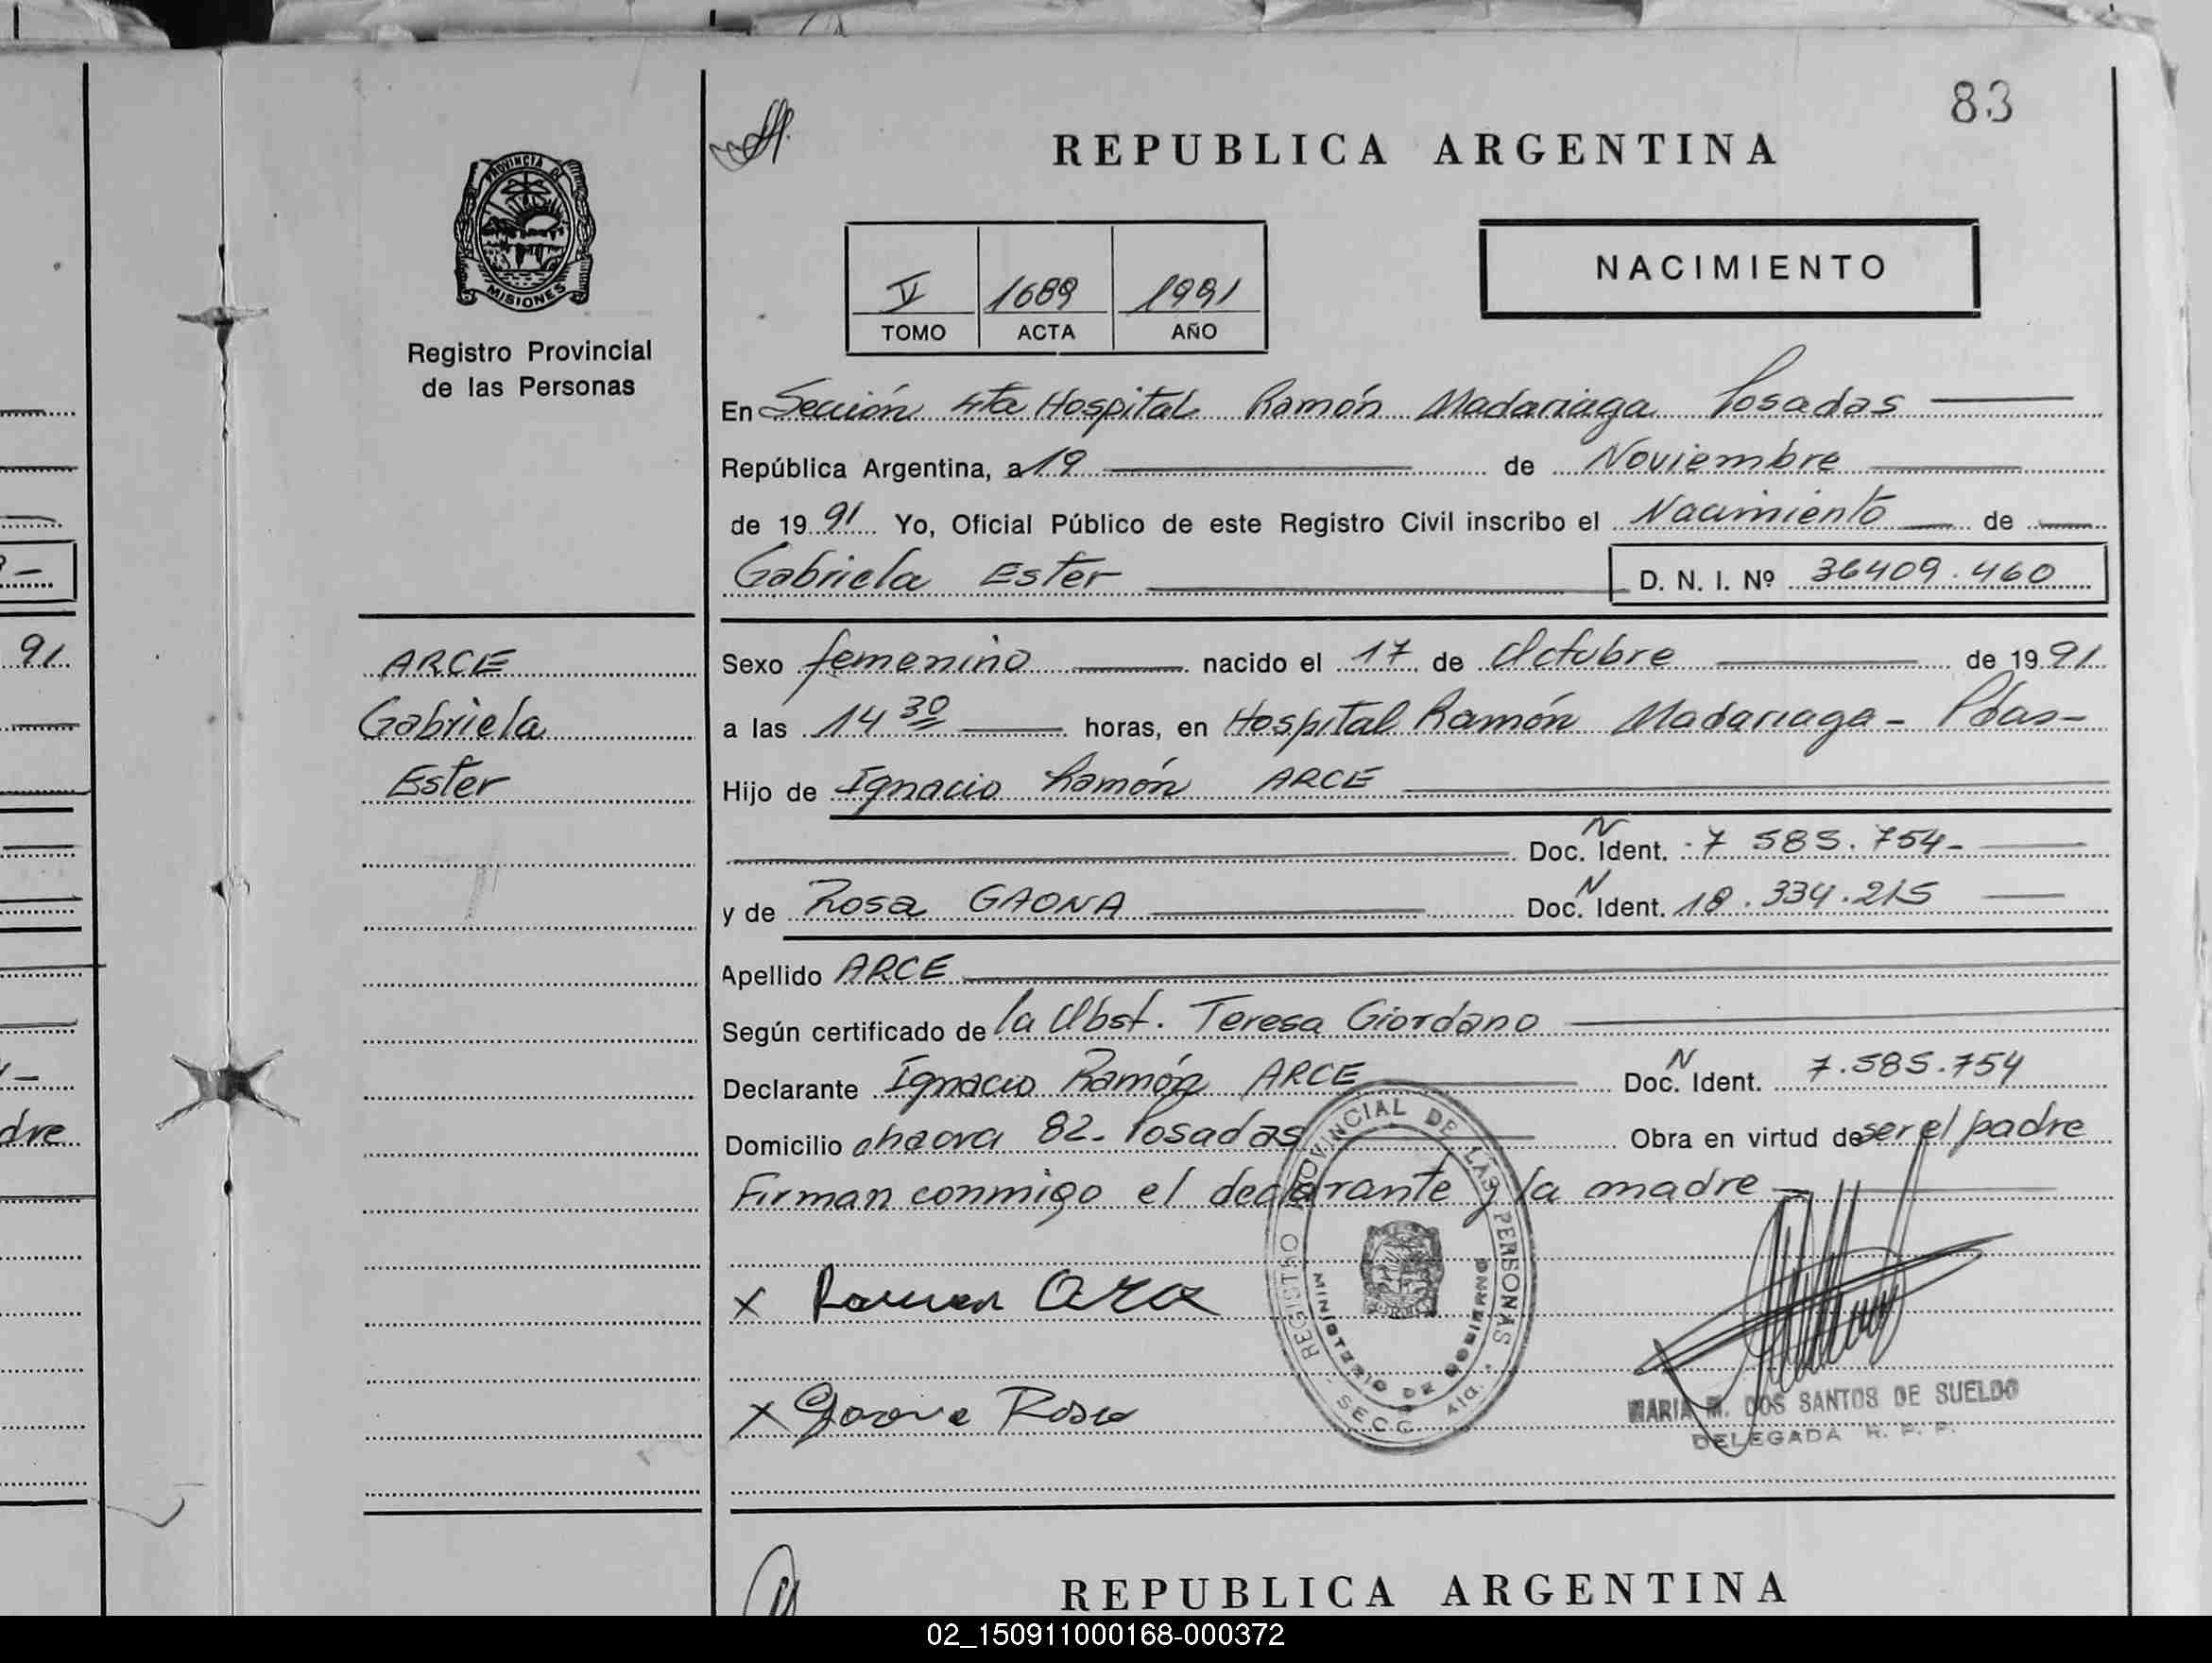 83
REPUBLICA ARGENTINA
PROVINCIA DE
MISIONES
Registro Provincial
de las Personas
NACIMIENTO
V 1689 1991
TOMO ACTA AÑO
En Sección 4ta Hospital Ramón Madariaga Posadas
República Argentina, a 19 de Noviembre
de 19 91 Yo, Oficial Público de este Registro Civil inscribo el Nacimiento de
Gabriela Ester D. N. I. Nº 36409.460
ARCE
Gabriela
Ester
Sexo femenino nacido el 17 de Octubre de 19 91
a las 14 30 horas, en Hospital Ramón Madariaga - Pdas-
Hijo de Ignacio Ramón ARCE
Doc. N Ident. 7 585.754-
y de Rosa GAONA Doc. N Ident. 18.334.215
Apellido ARCE
Según certificado de la Obst. Teresa Giordano
Declarante Ignacio Ramón ARCE Doc. N Ident. 7.585.754
Domicilio chacra 82. Posadas Obra en virtud de ser el padre
Firman conmigo el declarante y la madre
x Ramon Arce
x Gaona Rosa
REGISTRO PROVINCIAL DE LAS PERSONAS
MINISTERIO DE GOBIERNO
SECC. 4ta.
MARIA M. DOS SANTOS DE SUELDO
DELEGADA R. P. P.
91
dre
REPUBLICA ARGENTINA
02_150911000168-000372